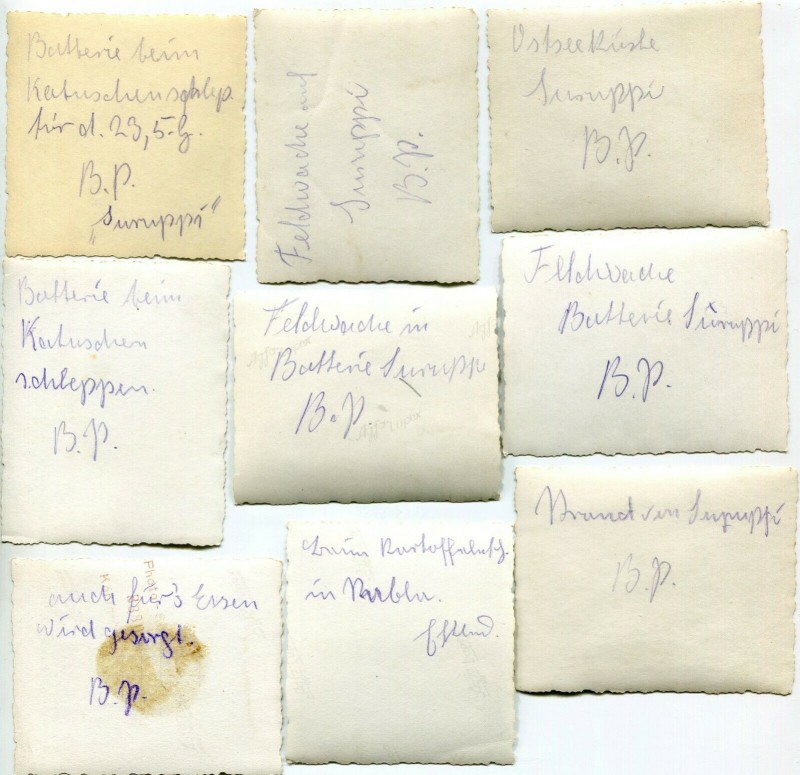 Batterie beim
Katuschenschlep.
für d. 23,5-g.
B.P.
„Suruppi“
Feldwache auf
Suruppi
B.P.
Ostseeküste
Suruppi
B.P.
Batterie beim
Katuschen
schleppen.
B.P.
Feldwache in
Batterie Suruppi
B.P.
Feldwache
Batterie Suruppi
B.P.
auch für's Essen
wird gesorgt.
B.P.
beim Kartoffelsch.
in
Estland.
Strand von Suruppi
B.P.